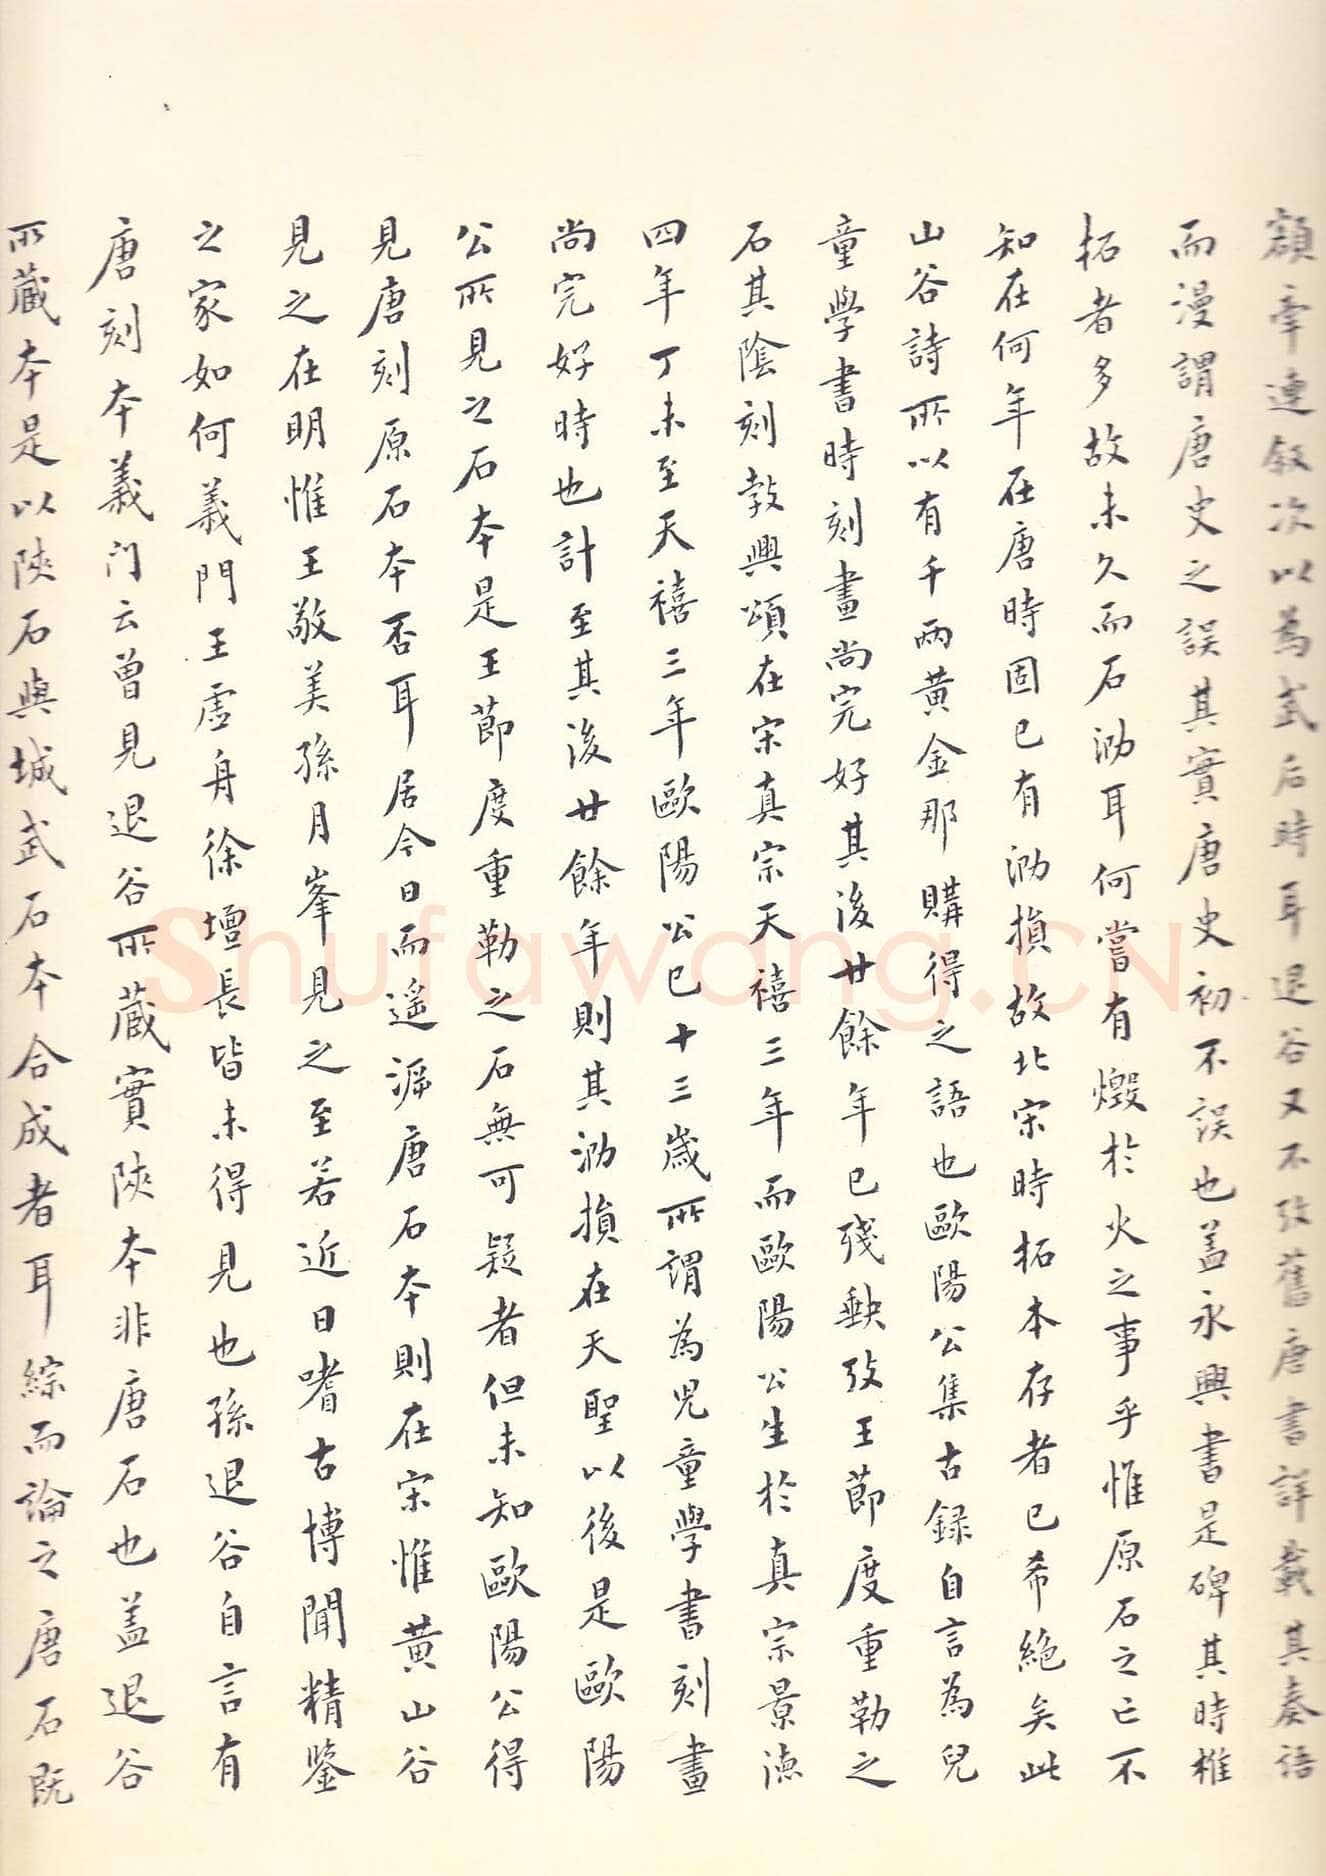 額牽連叙次以為武后時耳退谷又不攷舊唐書詳載其奏語
而漫謂唐史之誤其實唐史初不誤也蓋永興書是碑其時椎
拓者多故未久而石泐耳何當有燬於火之事乎惟原石之亡不
知在何年在唐時固已有泐損故北宋時拓本存者已希絶矣此
山谷詩所以有千兩黄金那購得之語也歐陽公集古録自言為兒
童學書時刻畫尚完好其後廿餘年已殘缺攷王節度重勒之
石其陰刻敎興頌在宋真宗天禧三年而歐陽公生於真宗景德
四年丁未至天禧三年歐陽公已十三歲所謂為児童學書刻畫
尚完好時也計至其後廿餘年則其泐損在天聖以後是歐陽
公所見之石本是王節度重勒之石無可疑者但未知歐陽公得
見唐刻原石本否耳居今日而遥溯唐石本則在宋惟黄山谷
見之在明惟王敬美孫月峯見之至若近日嗜古博聞精鑒
之家如何義門王虚舟徐壇長皆未得見也孫退谷自言有
唐刻本義门云曾見退谷所藏實陝本非唐石也蓋退谷
所藏本是以陝石與城武石本合成者耳綜而論之唐石既
Shufawang.CN